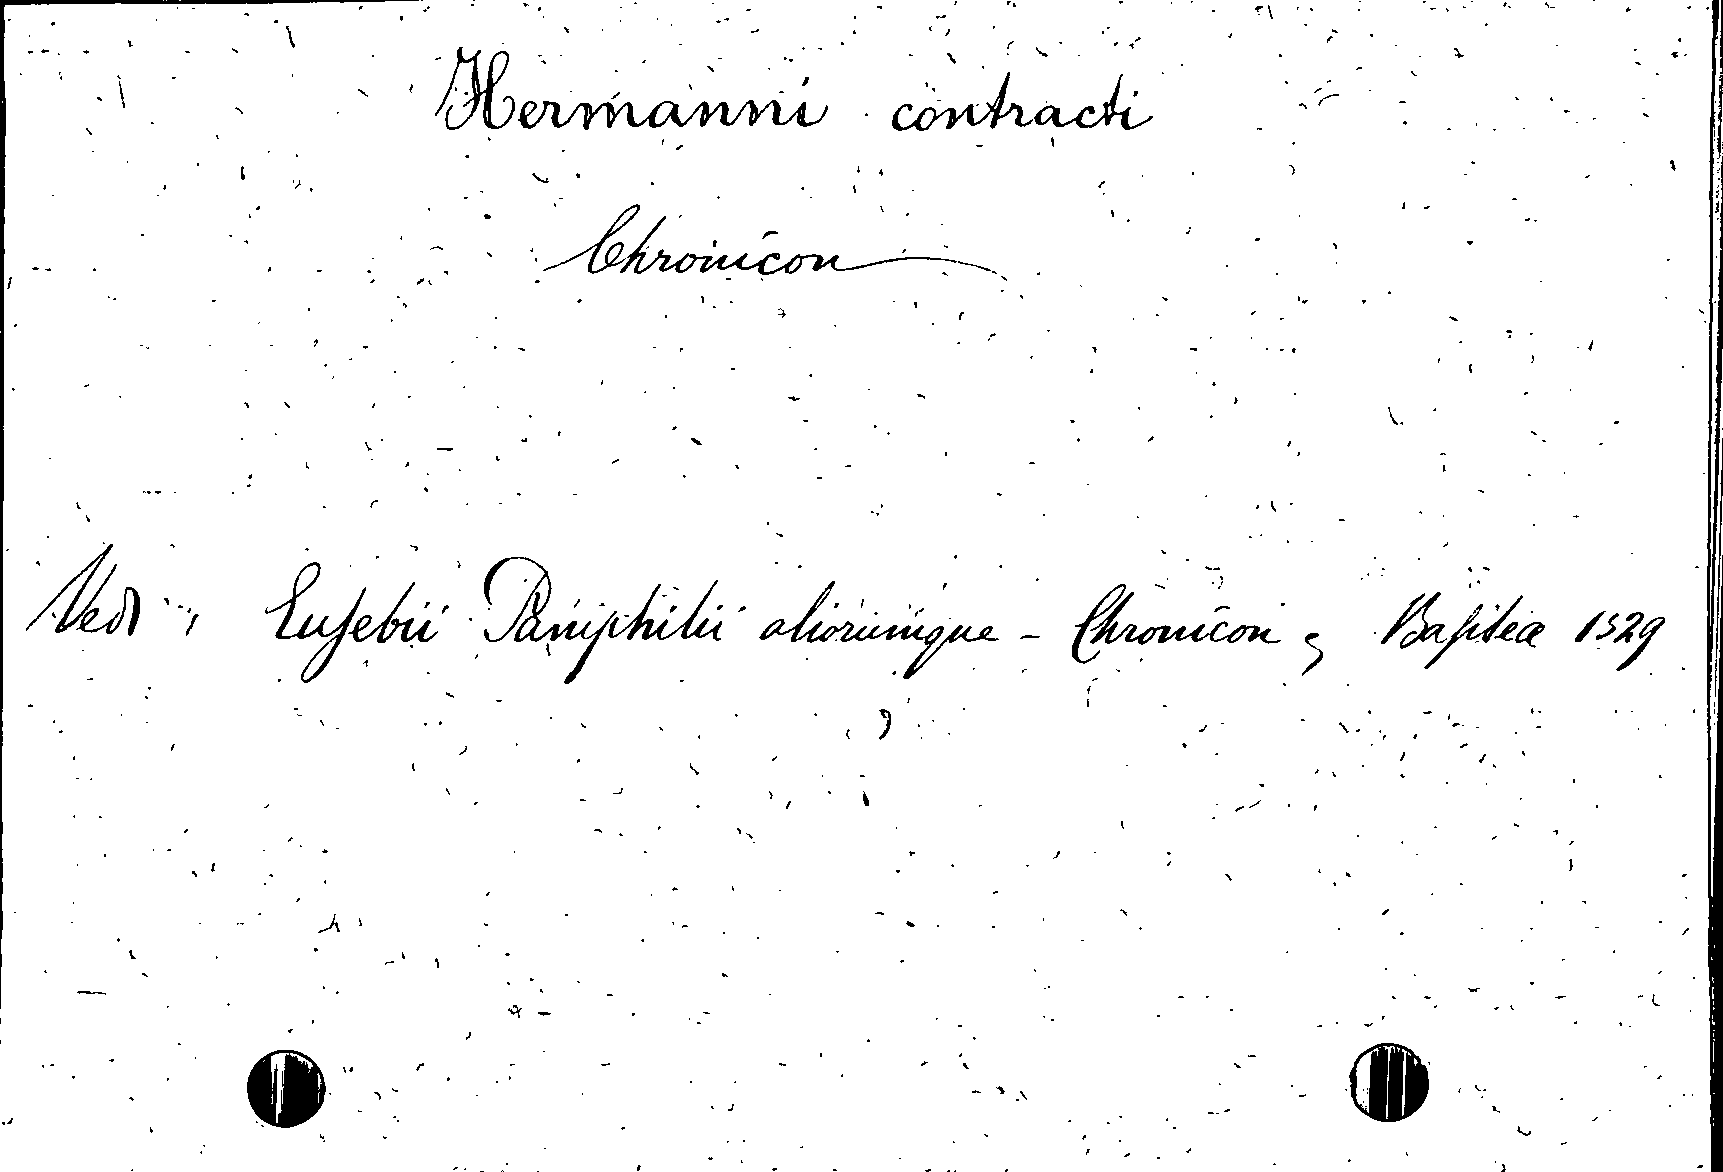 Hermanni contracti
Chronicon
Vedi, Eusebii Pamphilii aliorumque - Chronicon, Basilea 1529